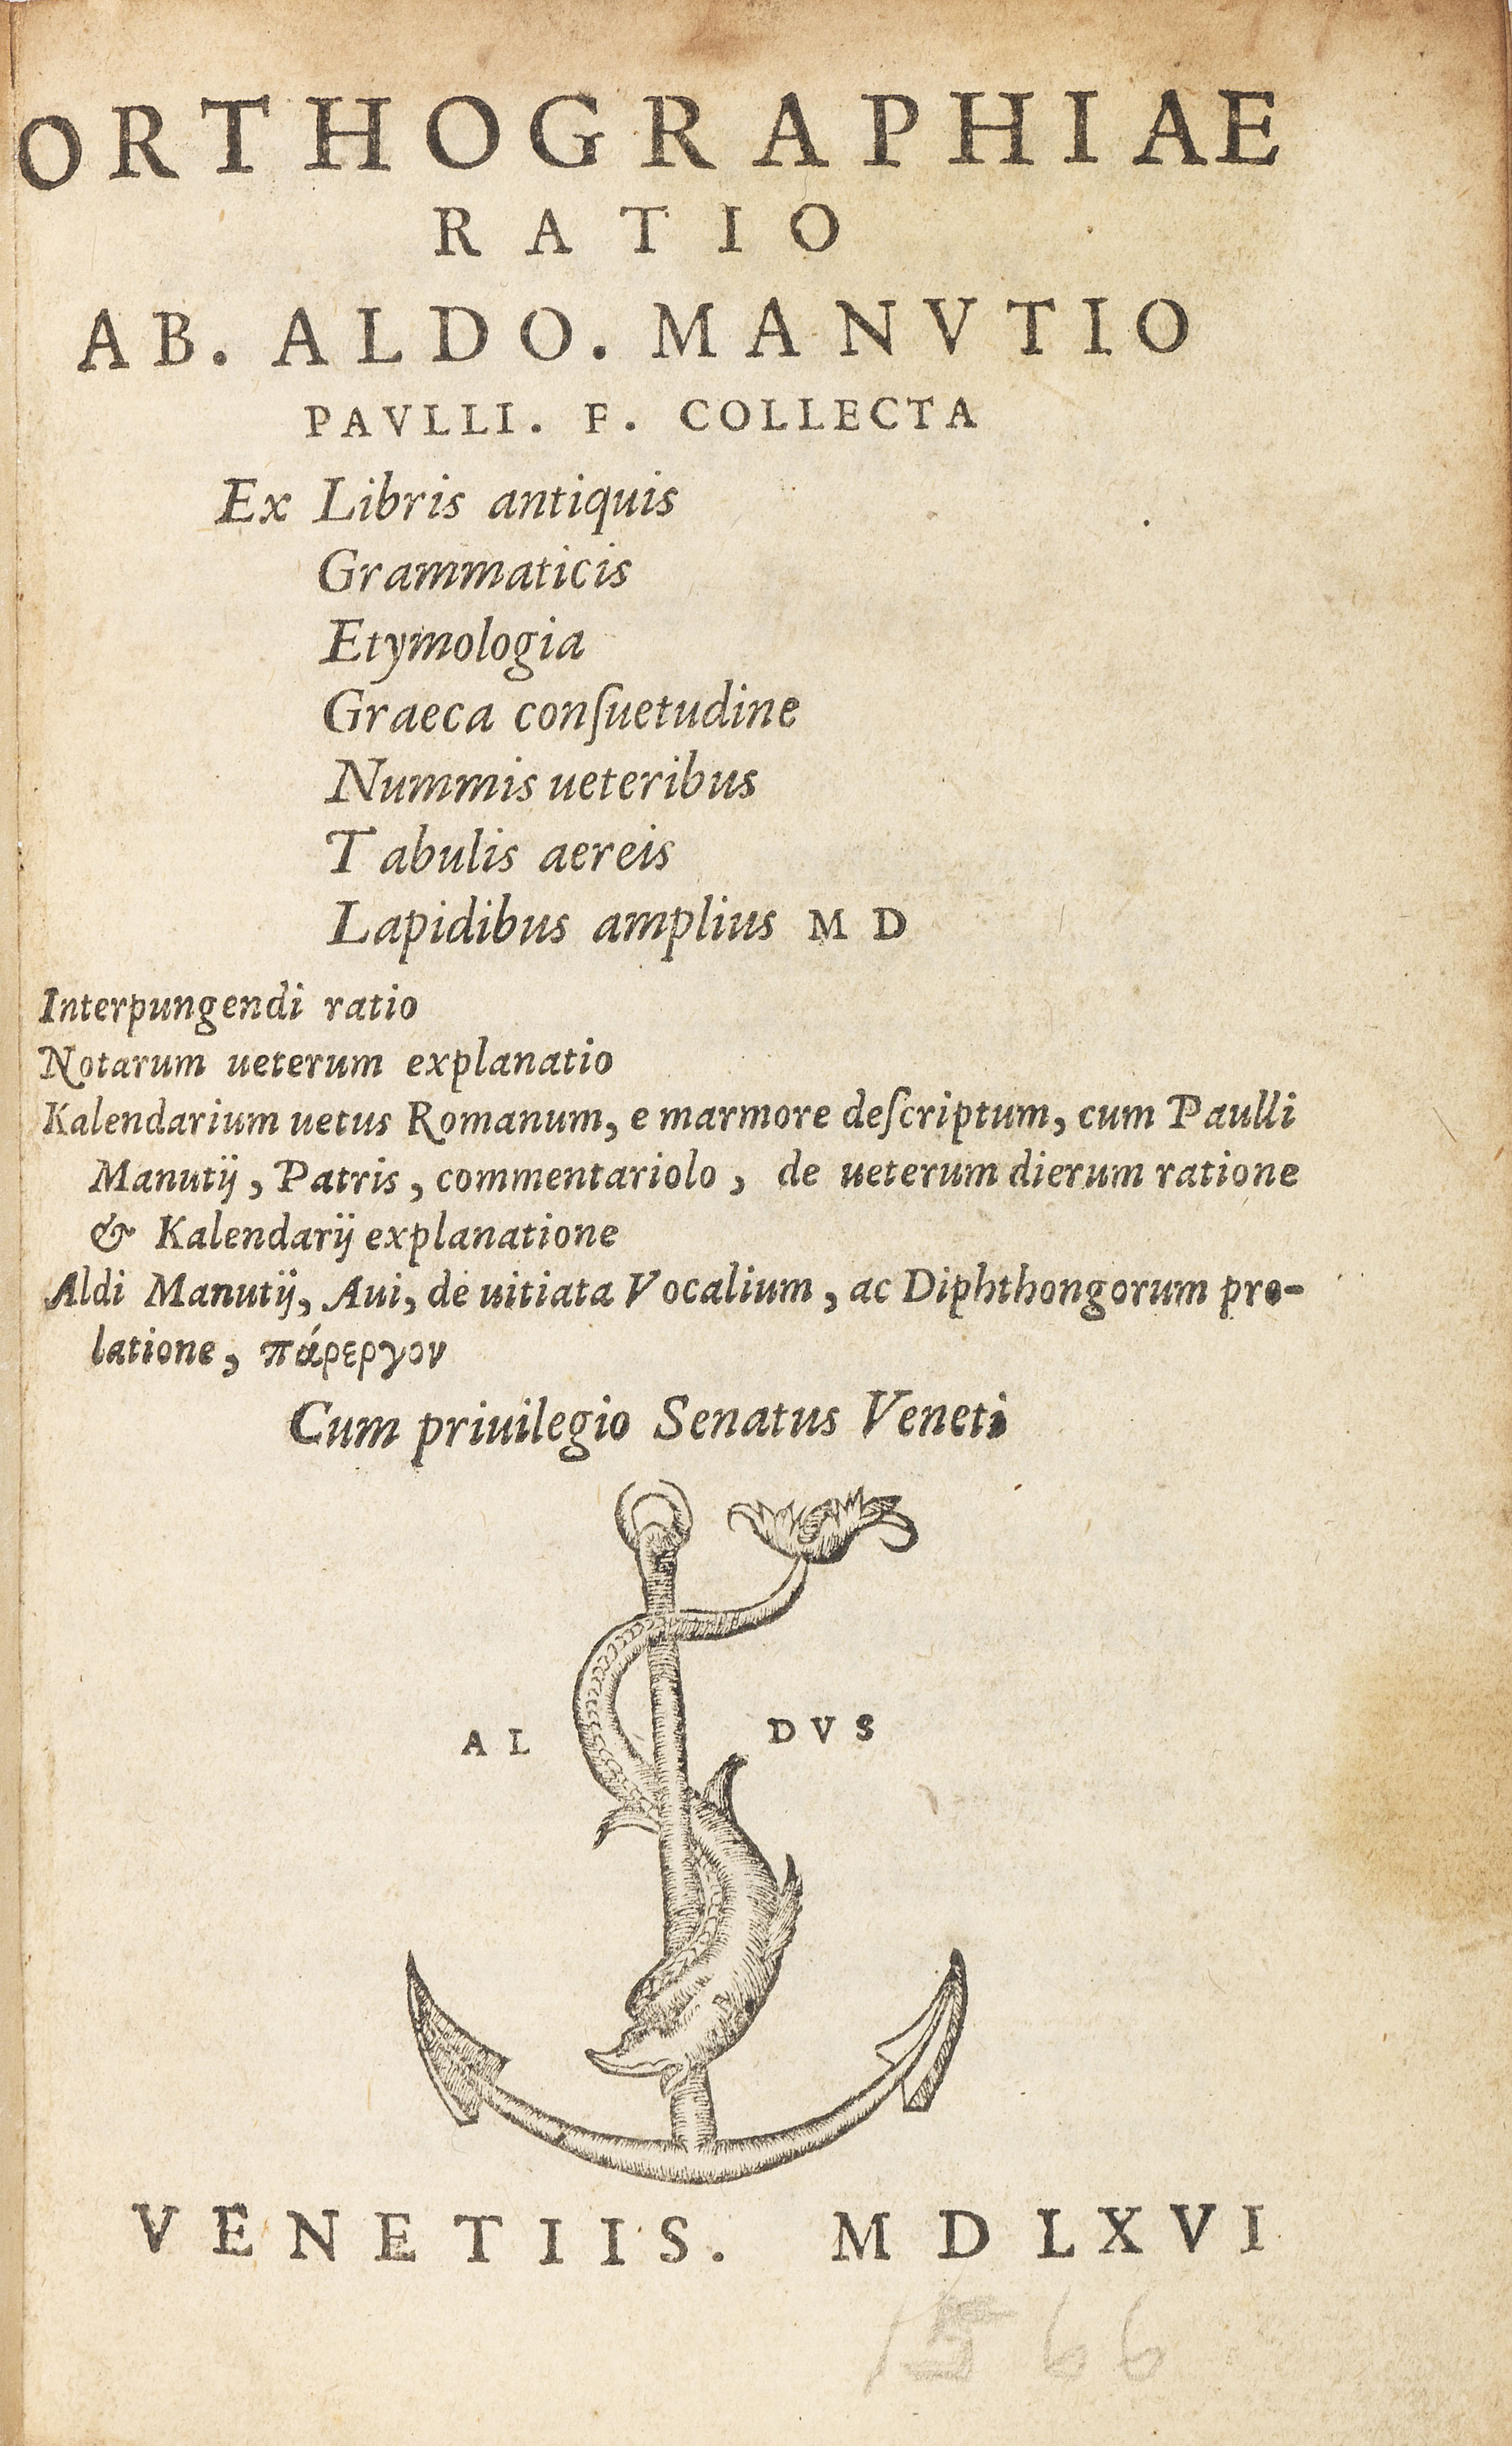 ORTHOGRAPHIAE
RATIO
AB. ALDO. MANVTIO
PAVLLI. F. COLLECTA
Ex Libris antiquis
Grammaticis
Etymologia
Graeca conſuetudine
Nummis ueteribus
Tabulis aereis
Lapidibus amplius M D
Interpungendi ratio
Notarum ueterum explanatio
Kalendarium uetus Romanum, e marmore deſcriptum, cum Paulli
Manutij, Patris, commentariolo, de ueterum dierum ratione
& Kalendarij explanatione
Aldi Manutij, Aui, de uitiata Vocalium, ac Diphthongorum pro-
latione, πάρεργον
Cum priuilegio Senatus Veneti
AL DVS
VENETIIS. M D LXVI
1566